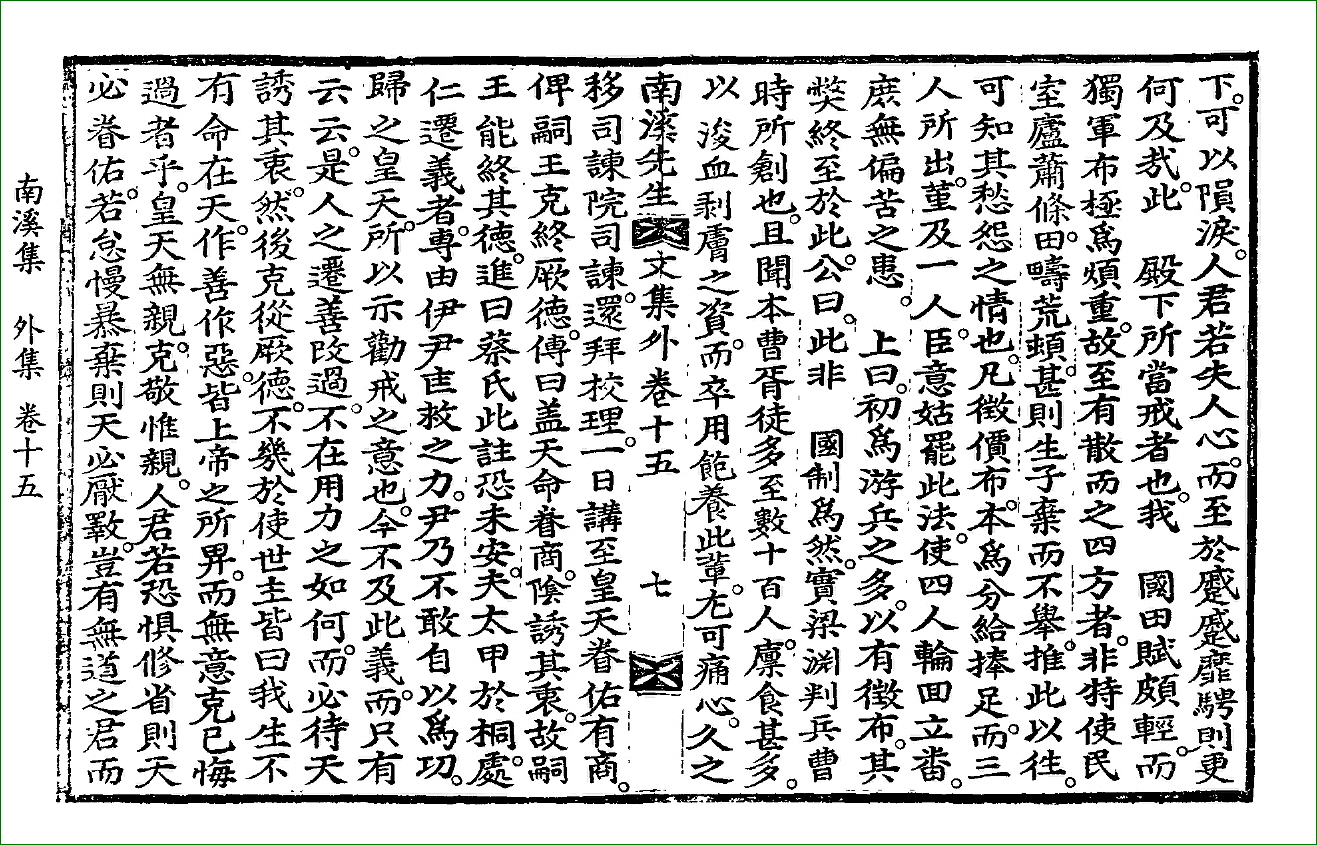 下。可以隕淚。人君若失人心。而至於蹙蹙靡騁。則更
何及哉。此 殿下所當戒者也。我 國田賦頗輕。而
獨軍布極爲煩重。故至有散而之四方者。非特使民
室廬蕭條。田疇荒頓。甚則生子棄而不擧。推此以往。
可知其愁怨之情也。凡徵價布。本爲分給捧足。而三
人所出。董及一人。臣意姑罷此法。使四人輪回立番。
庶無偏苦之患。 上曰。初爲游兵之多。以有徵布。其
弊終至於此。公曰。此非 國制爲然。實梁淵判兵曹
時所創也。且聞本曹胥徒多至數十百人。廩食甚多。
以浚血剝膚之資。而卒用飽養此輩。尤可痛心。久之
南溪先生文集外卷十五 七
移司諫院司諫。還拜校理。一日講至皇天眷佑有商。
俾嗣王克終厥德。傳曰盖天命眷商。陰誘其衷。故嗣
王能終其德。進曰蔡氏此註恐未安。夫太甲於桐。處
仁遷義者。專由伊尹匡救之力。尹乃不敢自以爲功。
歸之皇天。所以示勸戒之意也。今不及此義。而只有
云云。是人之遷善改過。不在用力之如何。而必待天
誘其衷。然後克從厥德。不幾於使世主皆曰我生不
有命在天。作善作惡。皆上帝之所畀。而無意克己悔
過者乎。皇天無親。克敬惟親。人君若恐惧修省則天
必眷佑。若怠慢暴棄則天必厭斁。豈有無道之君而
南溪集 外集 卷十五